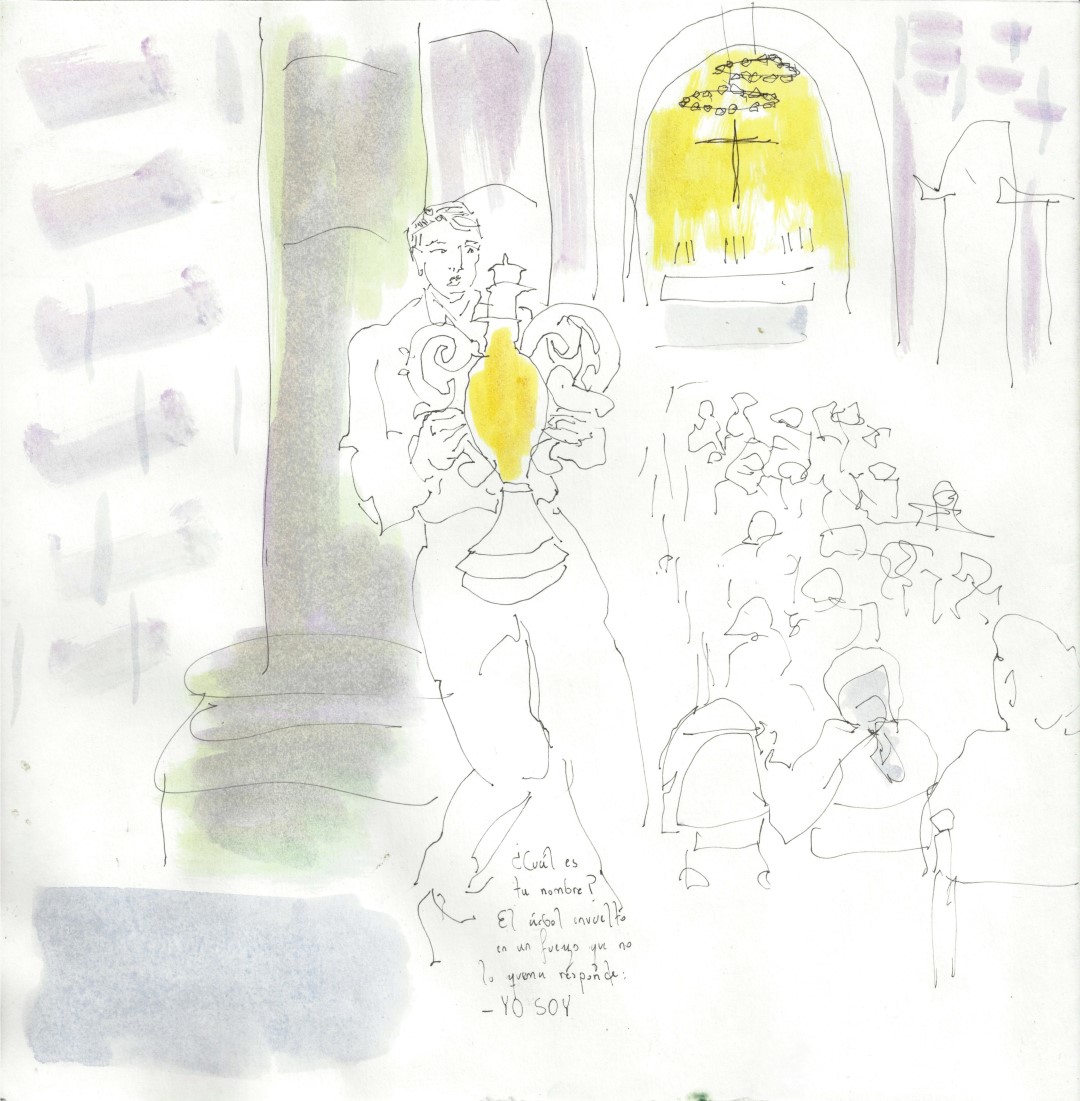 ¿Cuál es
tu nombre?
El árbol envuelto
en un fuego que no
lo quema responde:
- YO SOY